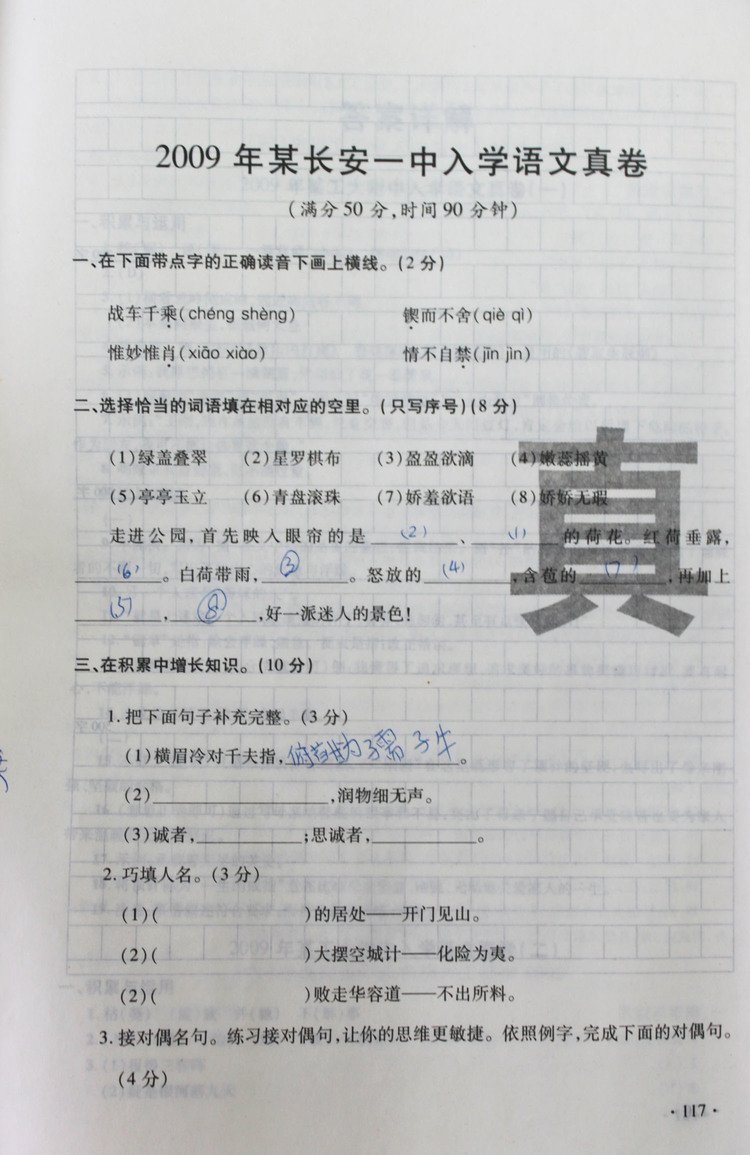 2009年某长安一中入学语文真卷
(满分50分,时间90分钟)
一、在下面带点字的正确读音下画上横线。(2分)
战车千乘(chéng shèng) 锲而不舍(qiè qì)
惟妙惟肖(xiāo xiào) 情不自禁(jīn jìn)
二、选择恰当的词语填在相对应的空里。(只写序号)(8分)
(1)绿盖叠翠 (2)星罗棋布 (3)盈盈欲滴 (4)嫩蕊摇黄
(5)亭亭玉立 (6)青盘滚珠 (7)娇羞欲语 (8)娇娇无瑕
真
走进公园,首先映入眼帘的是 (2) 、 (1) 的荷花。红荷垂露,
(6) 。白荷带雨, ③ 。怒放的 (4) ,含苞的 (7) ,再加上
(5) , ⑧ ,好一派迷人的景色!
三、在积累中增长知识。(10分)
1.把下面句子补充完整。(3分)
(1)横眉冷对千夫指,俯首甘为孺子牛。
(2) ,润物细无声。
(3)诚者, ;思诚者, 。
2.巧填人名。(3分)
(1)( )的居处——开门见山。
(2)( )大摆空城计——化险为夷。
(2)( )败走华容道——不出所料。
3.接对偶名句。练习接对偶句,让你的思维更敏捷。依照例字,完成下面的对偶句。
(4分)
·117·